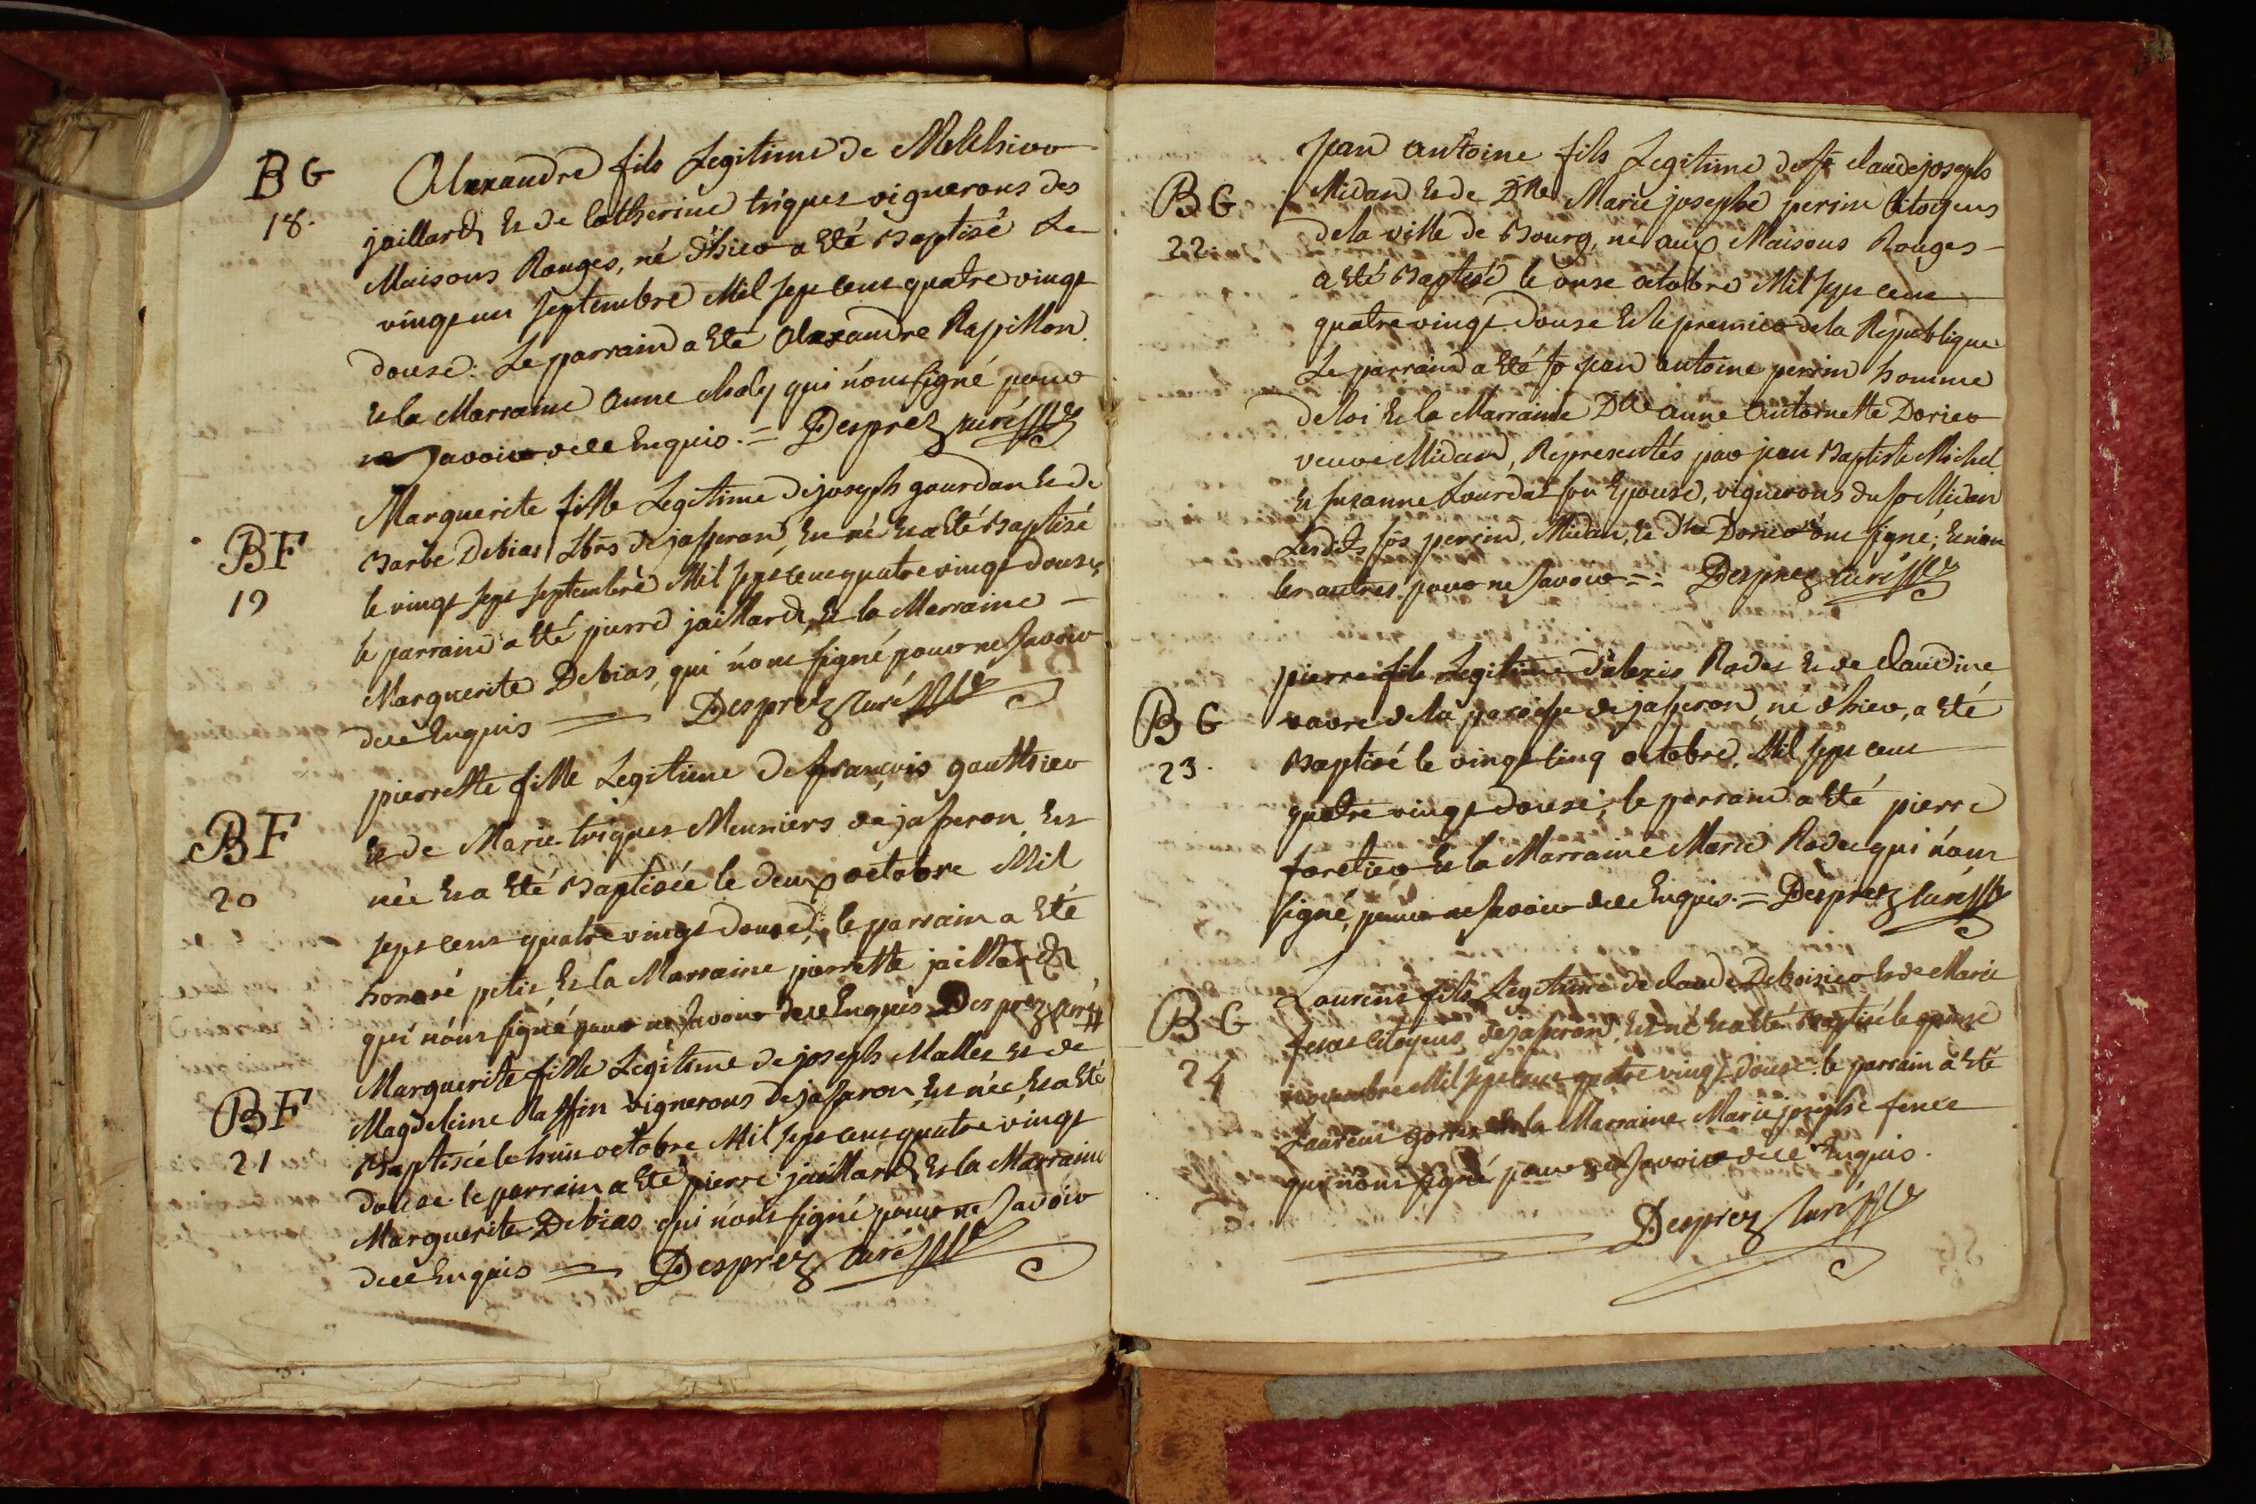 BG
18.
Alexandre fils Legitime de Melchior
jaillard, et de Catherine triquet vignerons des
Maisons Rouges, né d'hier a été Baptisé Le
vingt un septembre Mil sept cent quatre vingt
douse. Le parrain a été Alexandre Rapillon
et la Marraine Anne Maly qui n'ont signé pour
ne Savoir de ce Enquis. = Desprez curé
BF
19
Marguerite fille Legitime de joseph gourdan et de
Barbe Debias Lbrs de jasseron, est né et a été Baptisé
le vingt sept septembre Mil sept cent quatre vingt douse,
le parrain a été pierre jaillard, et la Marraine
Marguerite Debias, qui n'ont signé pour ne Savoir
de ce Enquis = Desprez curé
BF
20
pierrette fille Legitime de françois gauthier
et de Marie triquet Meuniers de jasseron, est
née et a été Baptisée le deux octobre Mil
sept cent quatre vingt douse, le parrain a été
honoré petit et la Marraine pierrette jaillard
qui n'ont signé pour ne Savoir de ce Enquis Desprez curé
BF
21
Marguerite fille Legitime de joseph Mallet et de
Magdeleine Raffin vignerons de jasseron, est née et a été
Baptisée le huit octobre Mil sept cent quatre vingt
douse. le parrain a été pierre jaillard et la Marraine
Marguerite Debias qui n'ont signé pour ne Savoir
de ce Enquis = Desprez curé
BG
22.
jean antoine fils Legitime de Sr claude joseph
Midan et de Dlle Marie josephe perrin Citoyens
de la ville de Bourg, né aux Maisons Rouges
a été Baptisé le onse octobre Mil sept cent
quatre vingt douse et le premier de la Republique
Le parrain a été Sr jean antoine perrin homme
de loi et la Marraine Dlle anne antoinette Dorier
veuve Midan, Representés par jean Baptiste Michel
et suzanne Lourdat son Epouse, vignerons du Sr Midan
Lesdits Srs perrin, Midan, et Dlle Dorier ont signé, et non
les autres pour ne Savoir = Desprez curé
BG
23.
pierre fils Legitime d'alexis Rodet et de claudine
vavre de la paroisse de jasseron, né d'hier, a été
Baptisé le vingt cinq octobre Mil sept cent
quatre vingt douse; le parrain a été pierre
foretier et la Marraine Marie Rodet qui n'ont
signé, pour ne Savoir de ce Enquis. = Desprez curé
BG
24
Laurent fils Legitime de claude Deboisier et de Marie
citoyens de jasseron, est né et a été Baptisé le quinse
novembre Mil sept cent quatre vingt douse. le parrain a été
Laurent et la Marraine Marie josephe
qui n'ont signé pour ne Savoir de ce Enquis.
Desprez curé